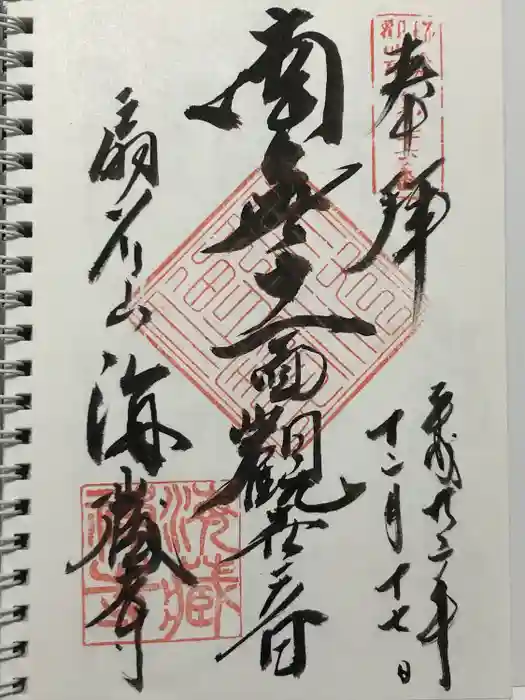 奉拝
平成廿二年
十二月十七日
南無十一面觀世音
扇谷山
海蔵寺